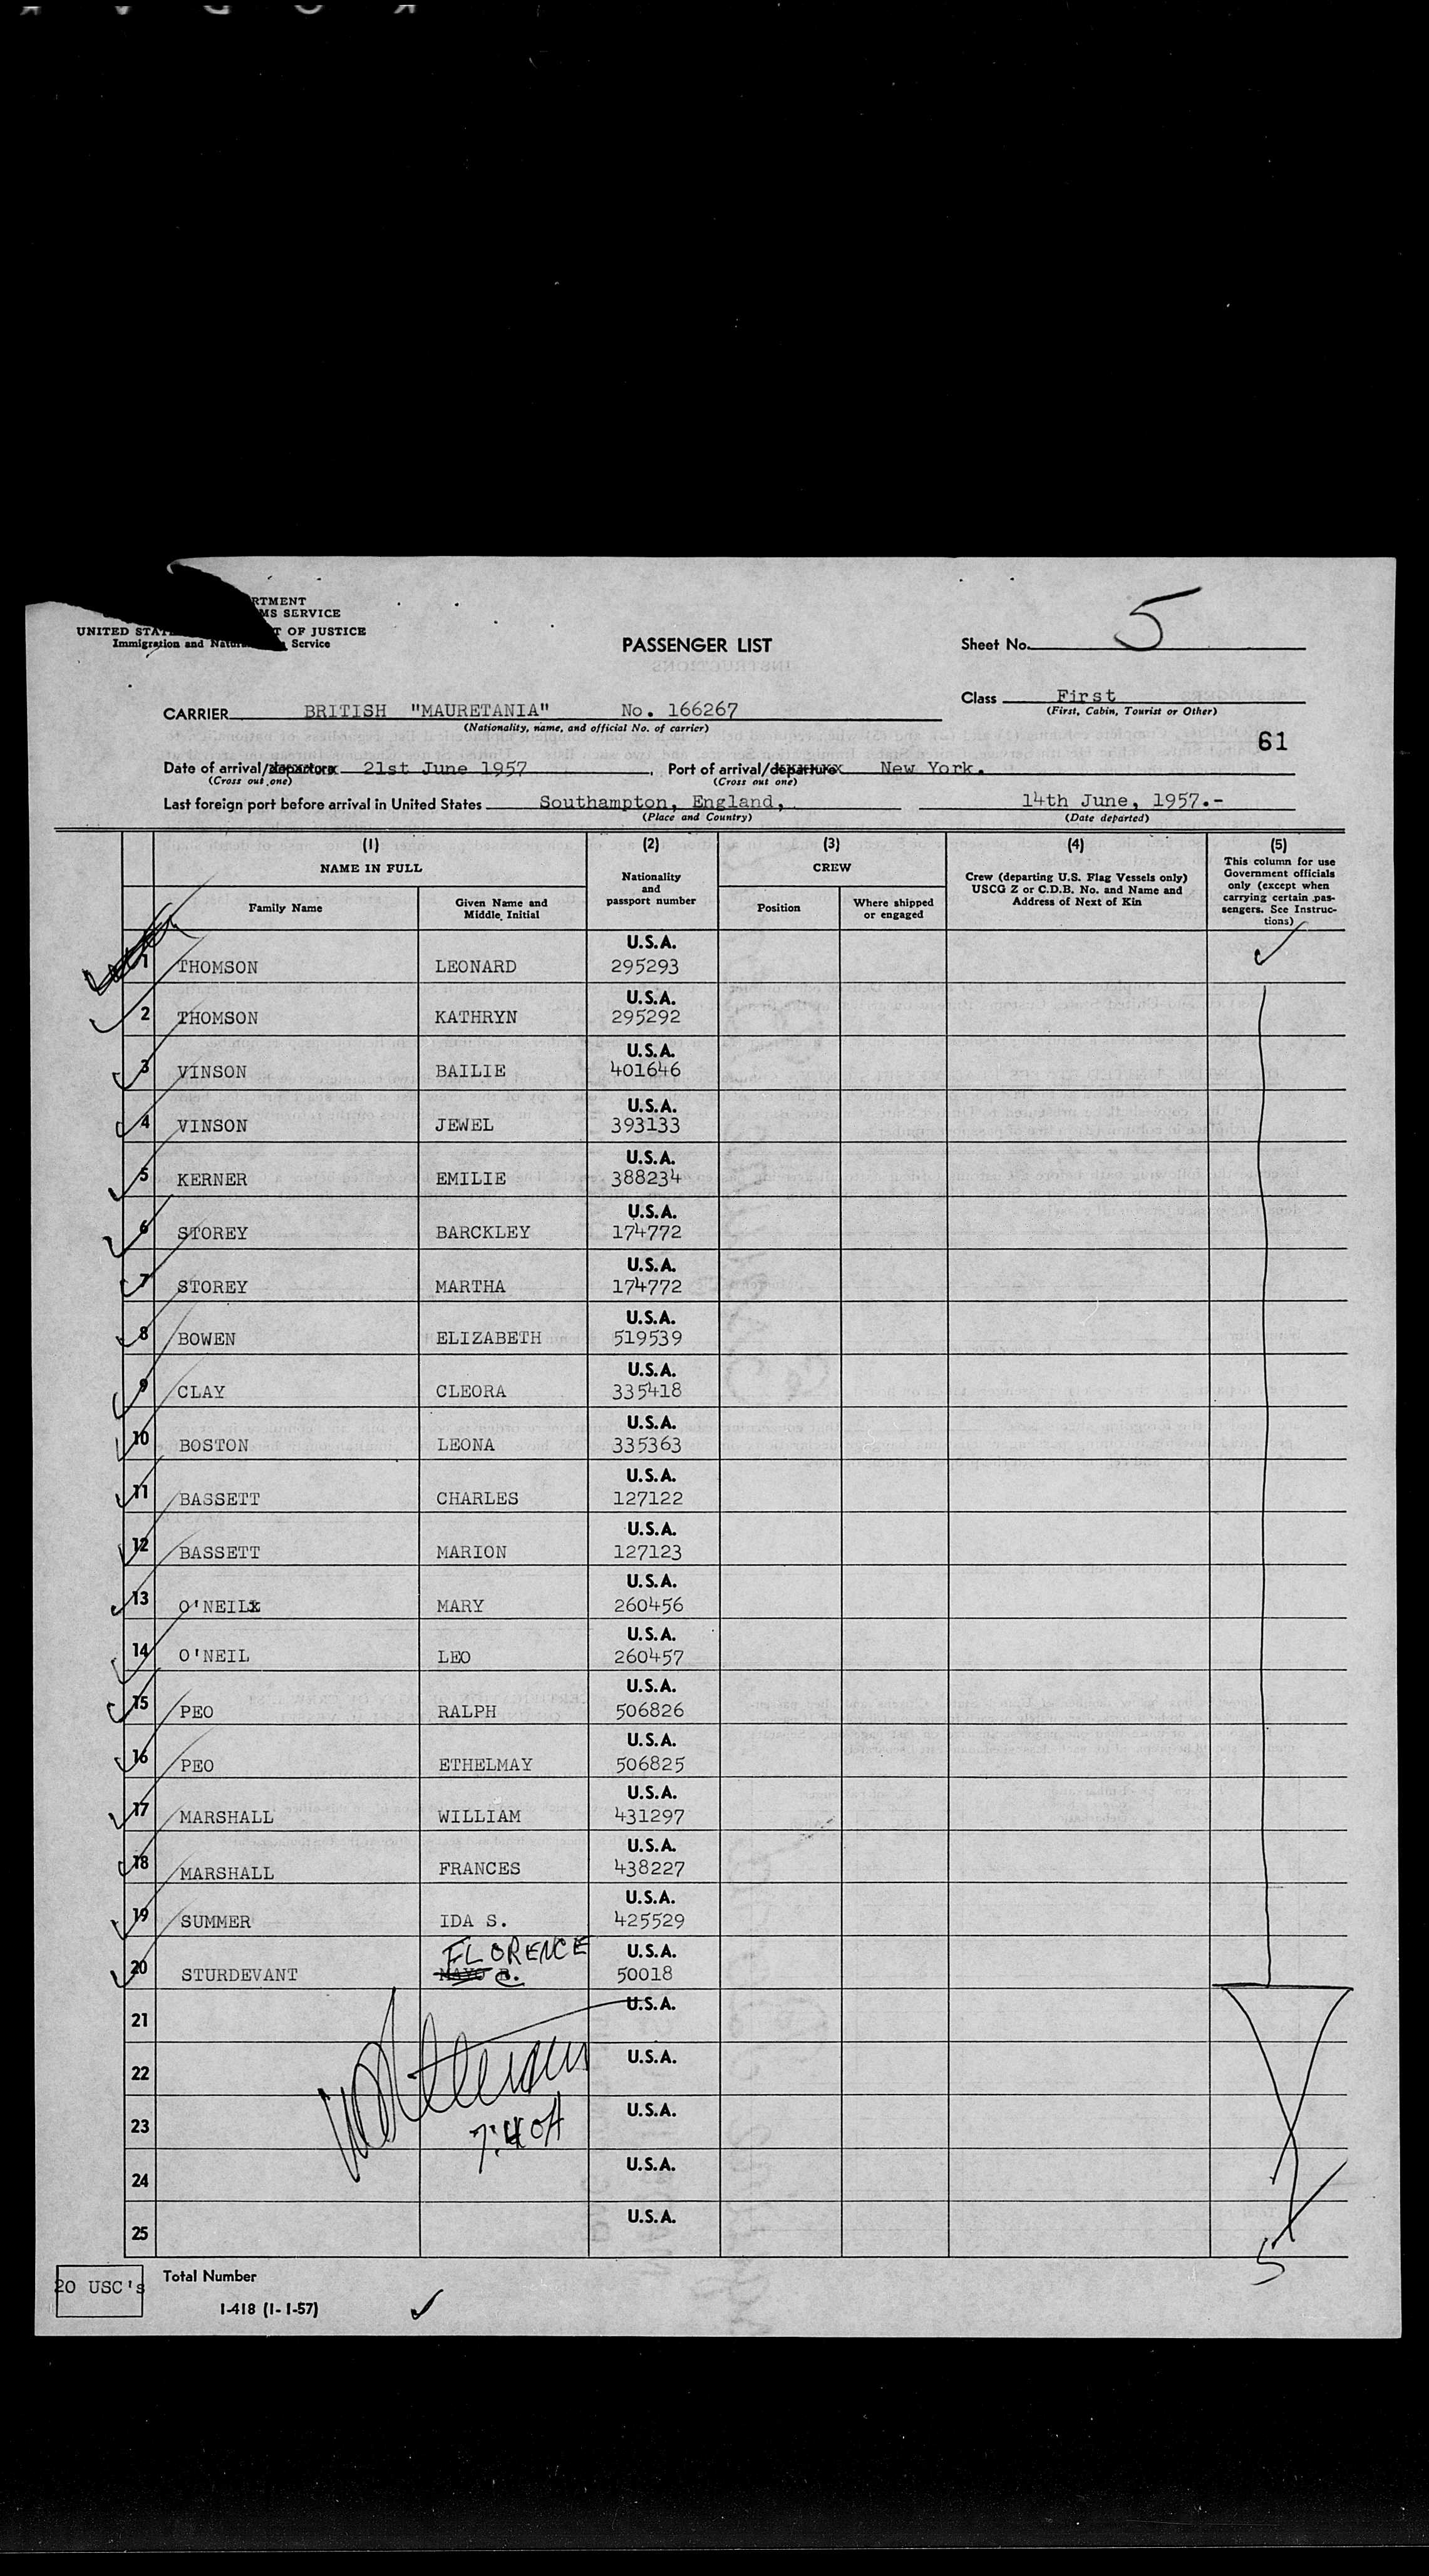 RTMENT
MS SERVICE
UNITED STAT T OF JUSTICE
Immigration and Natur Service
PASSENGER LIST
Sheet No. 5
Class First
(First, Cabin, Tourist or Other)
CARRIER BRITISH "MAURETANIA" No. 166267
(Nationality, name, and official No. of carrier)
61
Date of arrival/departure 21st June 1957. Port of arrival/departure New York.
(Cross out one) (Cross out one)
Last foreign port before arrival in United States Southampton, England, 14th June, 1957.-
(Place and Country) (Date departed)
(1) (2) (3) (4) (5)
NAME IN FULL
Family Name
Given Name and
Middle Initial
Nationality
and
passport number
CREW
Position
Where shipped
or engaged
Crew (departing U.S. Flag Vessels only)
USCG Z or C.D.B. No. and Name and
Address of Next of Kin
This column for use
Government officials
only (except when
carrying certain pas-
sengers. See Instruc-
tions)
U.S.A.
1 THOMSON LEONARD 295293
U.S.A.
2 THOMSON KATHRYN 295292
U.S.A.
3 VINSON BAILIE 401646
U.S.A.
4 VINSON JEWEL 393133
U.S.A.
5 KERNER EMILIE 388234
U.S.A.
6 STOREY BARCKLEY 174772
U.S.A.
7 STOREY MARTHA 174772
U.S.A.
8 BOWEN ELIZABETH 519539
U.S.A.
9 CLAY CLEORA 335418
U.S.A.
10 BOSTON LEONA 335363
U.S.A.
11 BASSETT CHARLES 127122
U.S.A.
12 BASSETT MARION 127123
U.S.A.
13 O'NEIL MARY 260456
U.S.A.
14 O'NEIL LEO 260457
U.S.A.
15 PEO RALPH 506826
U.S.A.
16 PEO ETHELMAY 506825
U.S.A.
17 MARSHALL WILLIAM 431297
U.S.A.
18 MARSHALL FRANCES 438227
U.S.A.
19 SUMMER IDA S. 425529
FLORENCE U.S.A.
20 STURDEVANT MAYO C. 50018
21 U.S.A.
22 U.S.A.
23 U.S.A.
7:40A
24 U.S.A.
25 U.S.A.
5
20 USC's Total Number
I-418 (1-1-57)